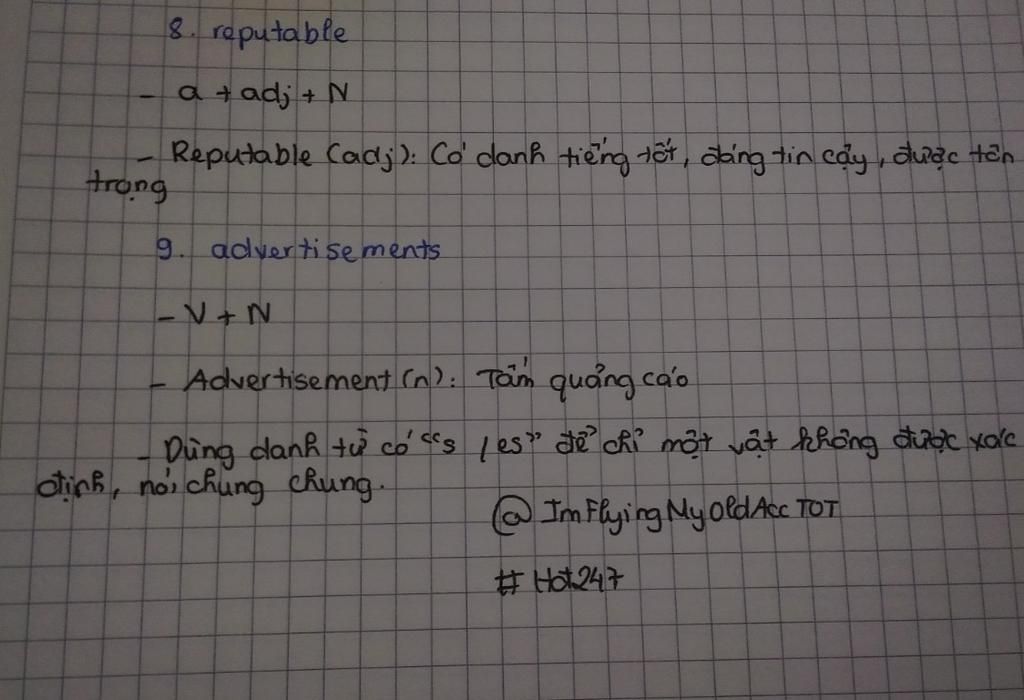 8. reputable
- a + adj + N
- Reputable (adj): Có danh tiếng tốt, đáng tin cậy, được tôn
trọng
9. advertisements
- V + N
- Advertisement (n): Tấm quảng cáo
- Dùng danh từ có "s /es" để chỉ một vật không được xác
định, nói chung chung.
@ ImFlyingMyOldAccTOT
# Hot247